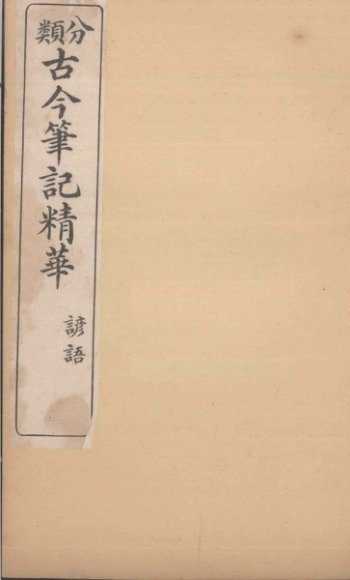 分類
古今筆記精華
諺語